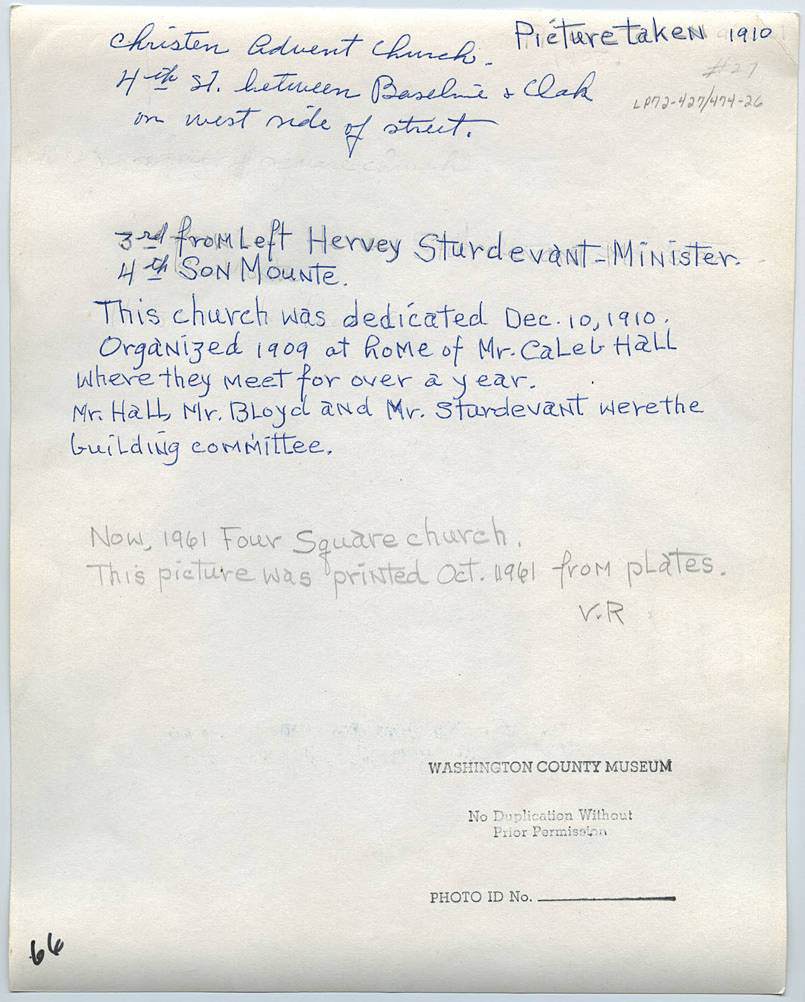 Christen Advent Church. Picture taken 1910
#27
4th St. between Baseline & Oak
LP72-427/474-26
on west side of street.
3rd from Left Hervey Sturdevant-Minister.
4th Son Mounte.
This church was dedicated Dec. 10, 1910.
Organized 1909 at home of Mr. Caleb Hall
where they meet for over a year.
Mr. Hall, Mr. Bloyd and Mr. Sturdevant were the
building committee.
Now, 1961 Four Square church.
This picture was printed Oct. 1961 from plates.
V.R
WASHINGTON COUNTY MUSEUM
No Duplication Without
Prior Permission
PHOTO ID No.
66